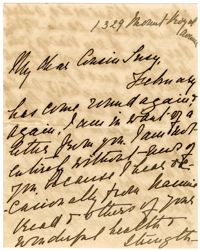 1329 Mount Royal
Avenue
My dear Cousin Susy,
February
has come round again &
again, I am in want of a
letter from you. I am not
entirely without news of
you, because I hear oc-
casionally from
& others of your
wonderful health
strength